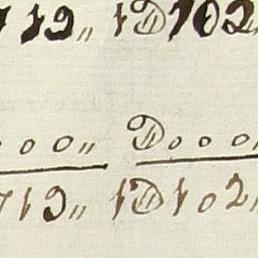 719〃 1D102
000〃 D000〃
719〃 1D102〃